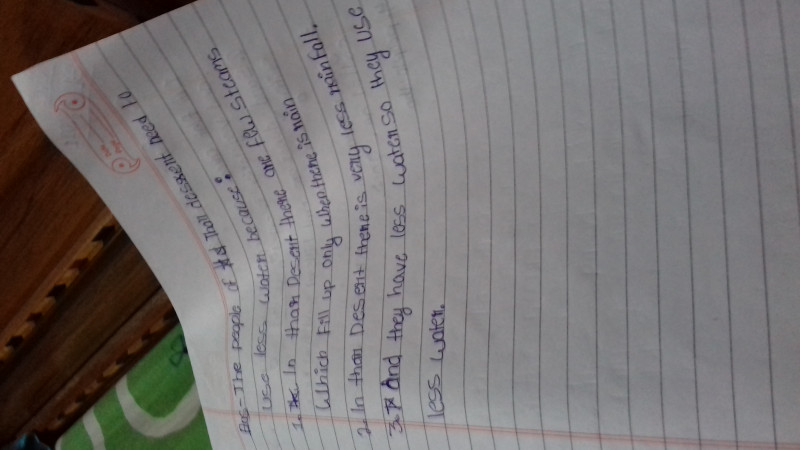 Ans- The people of Thar dessent need to
use less water because:
1. In than Desert there are few steams
which fill up only when there is rain
2. In than Desert there is very less rainfall.
3. And they have less water so they use
less water.